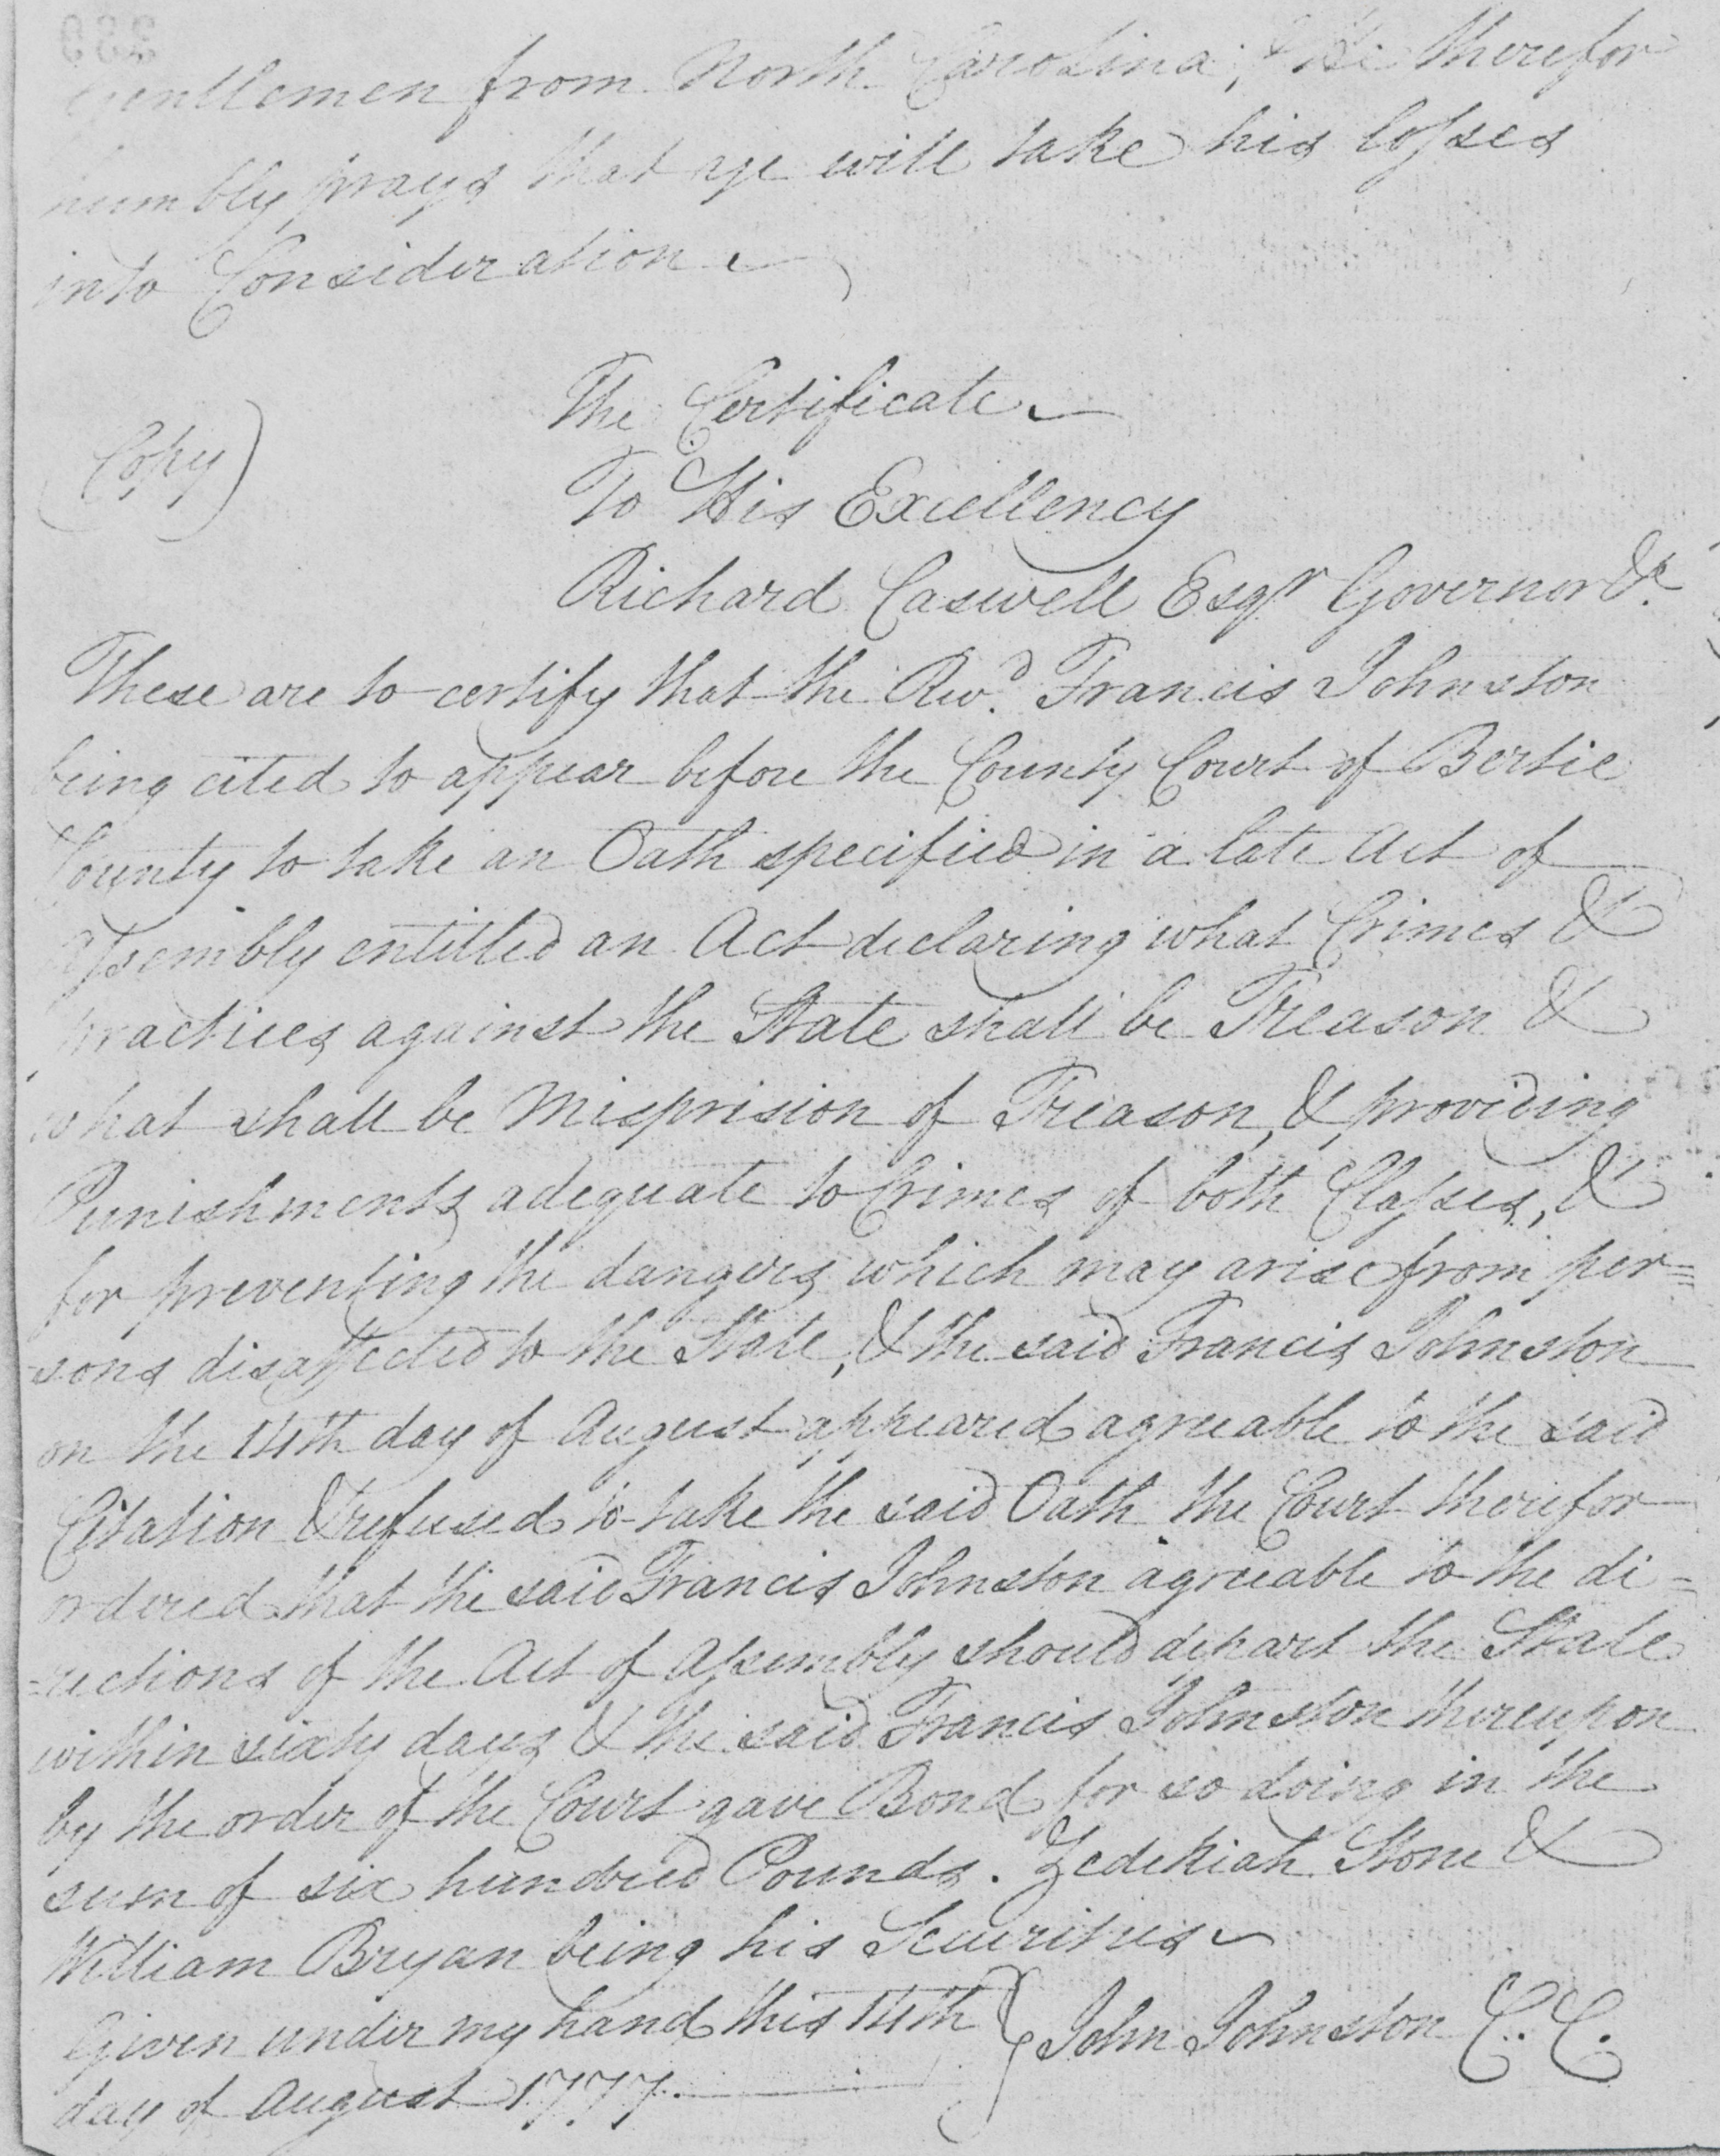 Gentlemen from North Carolina; & He therefor
humbly prays that ye will take his losses
into Consideration.
The Certificate.
(Copy)
To His Excellency
Richard Caswell Esqr Governor &c
These are to certify that the Revd. Francis Johnston
being cited to appear before the County Court of Bertie
County to take an Oath specified in a late Act of
Assembly entitled an Act declaring what Crimes &
practices against the State shall be Treason &
what shall be Misprision of Treason, & providing
Punishments adequate to Crimes of both Classes, &
for preventing the dangers which may arise from per=
=sons disaffected to the State, & the said Francis Johnston
on the 14th day of August appeared agreeable to the said
Citation & refused to take the said Oath the Court therefor
ordered that the said Francis Johnston agreeable to the di=
=rections of the Act of Assembly should depart the State
within sixty days & the said Francis Johnston thereupon
by the order of the Court gave Bond for so doing in the
sum of six hundred Pounds. Zedekiah Stone &
William Bryan being his Securities
Given under my hand this 14th } John Johnston C. C.
day of August 1777.